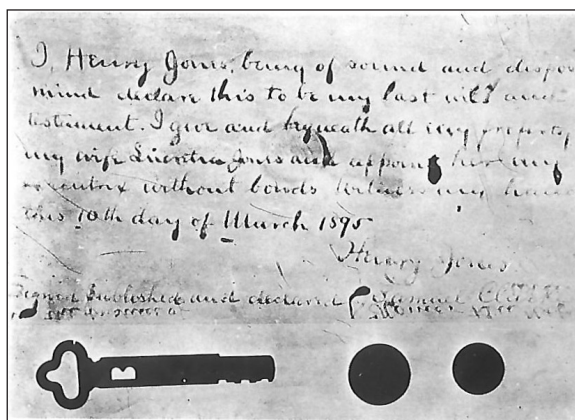 I, Henry Jones, being of sound and dispos
mind declare this to be my last will and
testament. I give and bequeath all my property
my wife Jones and appoint her my
executrix without bonds Witness my hand
this 10th day of March 1895
Henry Jones
Signed Published and declared Samuel
B